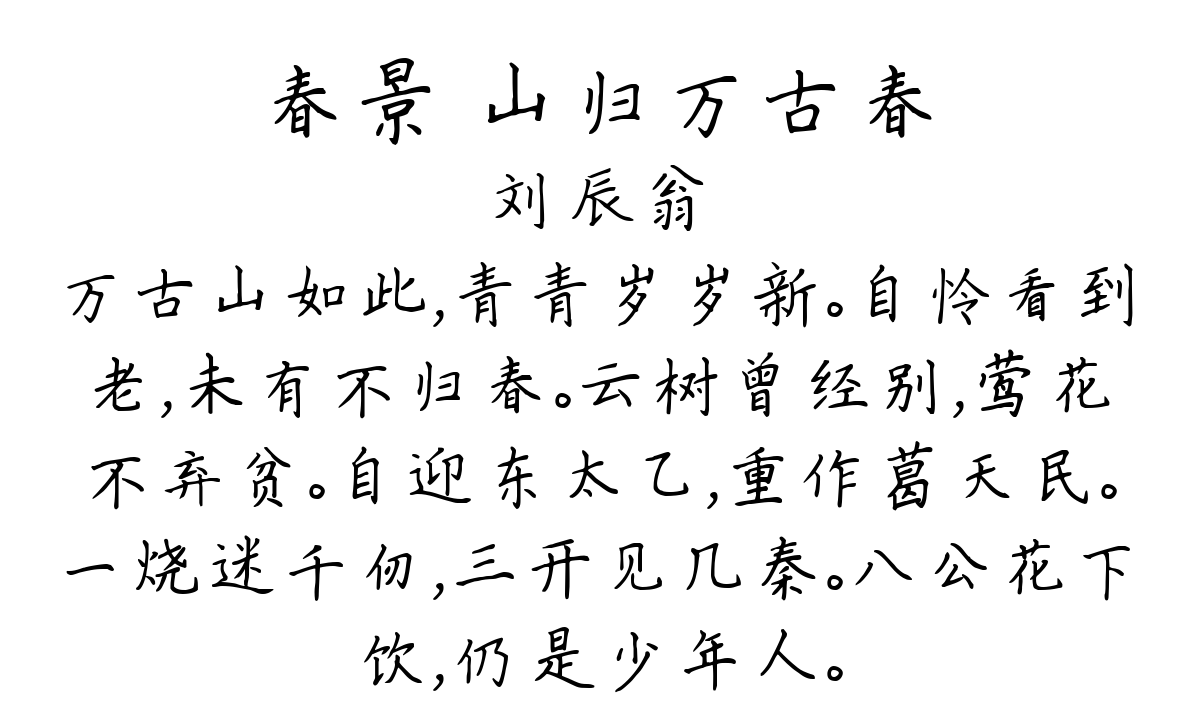 春景 山归万古春
刘辰翁
万古山如此,青青岁岁新。自怜看到
老,未有不归春。云树曾经别,莺花
不弃贫。自迎东太乙,重作葛天民。
一烧迷千仞,三开见几秦。八公花下
饮,仍是少年人。